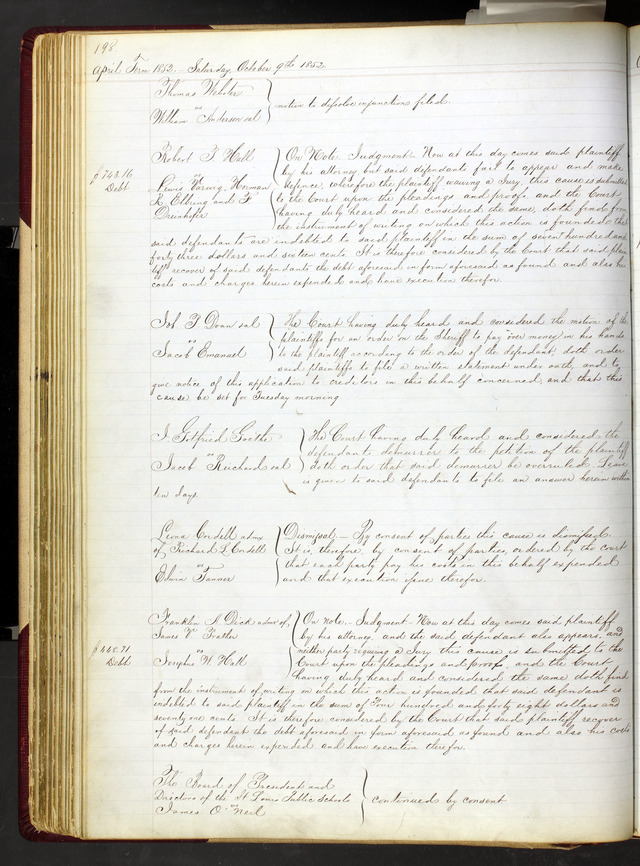 198
April Term 1852 Saturday October 9th 1852
Thomas Webster
vs
William Anderson et al
motion to dissolve injunction filed.
$743.16
Debt
Robert F Hall
vs
Lewis Herman
K. Ebbing and F
On Note. Judgment— Now at this day comes said plaintiff
by his attorney but said defendants fail to appear and make
defence, wherefore the plaintiff waiving a Jury, this cause is submitted
to the Court upon the pleadings and proofs, and the Court
having duly heard and considered the same, doth find from
the instrument of writing on which this action is founded that
said defendants are indebted to said plaintiff in the sum of seven hundred and
forty three dollars and sixteen cents. It is therefore considered by the Court that said plain
tiff recover of said defendants the debt aforesaid in form aforesaid as found and also his
costs and charges herein expended and have execution therefor.
F Doan et al
vs
Jacob Emanuel
The Court having duly heard and considered the motion of the
plaintiffs for an order on the Sheriff to pay over money in his hands
to the plaintiff according to the order of the defendant, doth order
said plaintiffs to file a written statement under oath, and to
give notice of this application to creditors in this behalf concerned, and that this
cause be set for Tuesday morning
J. Gotfried Goethe
vs
Jacob Reichard et al
The Court having duly heard and considered the
defendants demurrer to the petition of the plaintiff
doth order that said demurrer be overruled. Leave
is given to said defendants to file an answer herein within
ten days.
Leona Cordell admx
of Richard L Cordell
vs
Edwin Tanner
Dismissal— By consent of parties this cause is dismissed.
It is, therefore, by consent of parties, ordered by the court
that each party pay his costs in this behalf expended
and that execution issue therefor.
$448.71
Debt
Franklin A Dick admr of
James V. Prather
vs
Josephus W. Hall
On note.— Judgment— Now at this day comes said plaintiff
by his attorney and the said defendant also appears, and
neither party requiring a Jury this cause is submitted to the
Court upon the pleadings and proofs, and the Court
having duly heard and considered the same doth find
from the instrument of writing on which this action is founded that said defendant is
indebted to said plaintiff in the sum of Four hundred and forty eight dollars and
seventy one cents. It is therefore considered by the Court that said plaintiff recover
of said defendant the debt aforesaid in form aforesaid as found and also his costs
and charges herein expended and have execution therefor.
The Board of President and
Directors of the St Louis Public Schools
vs
James O'Neil
continued by consent